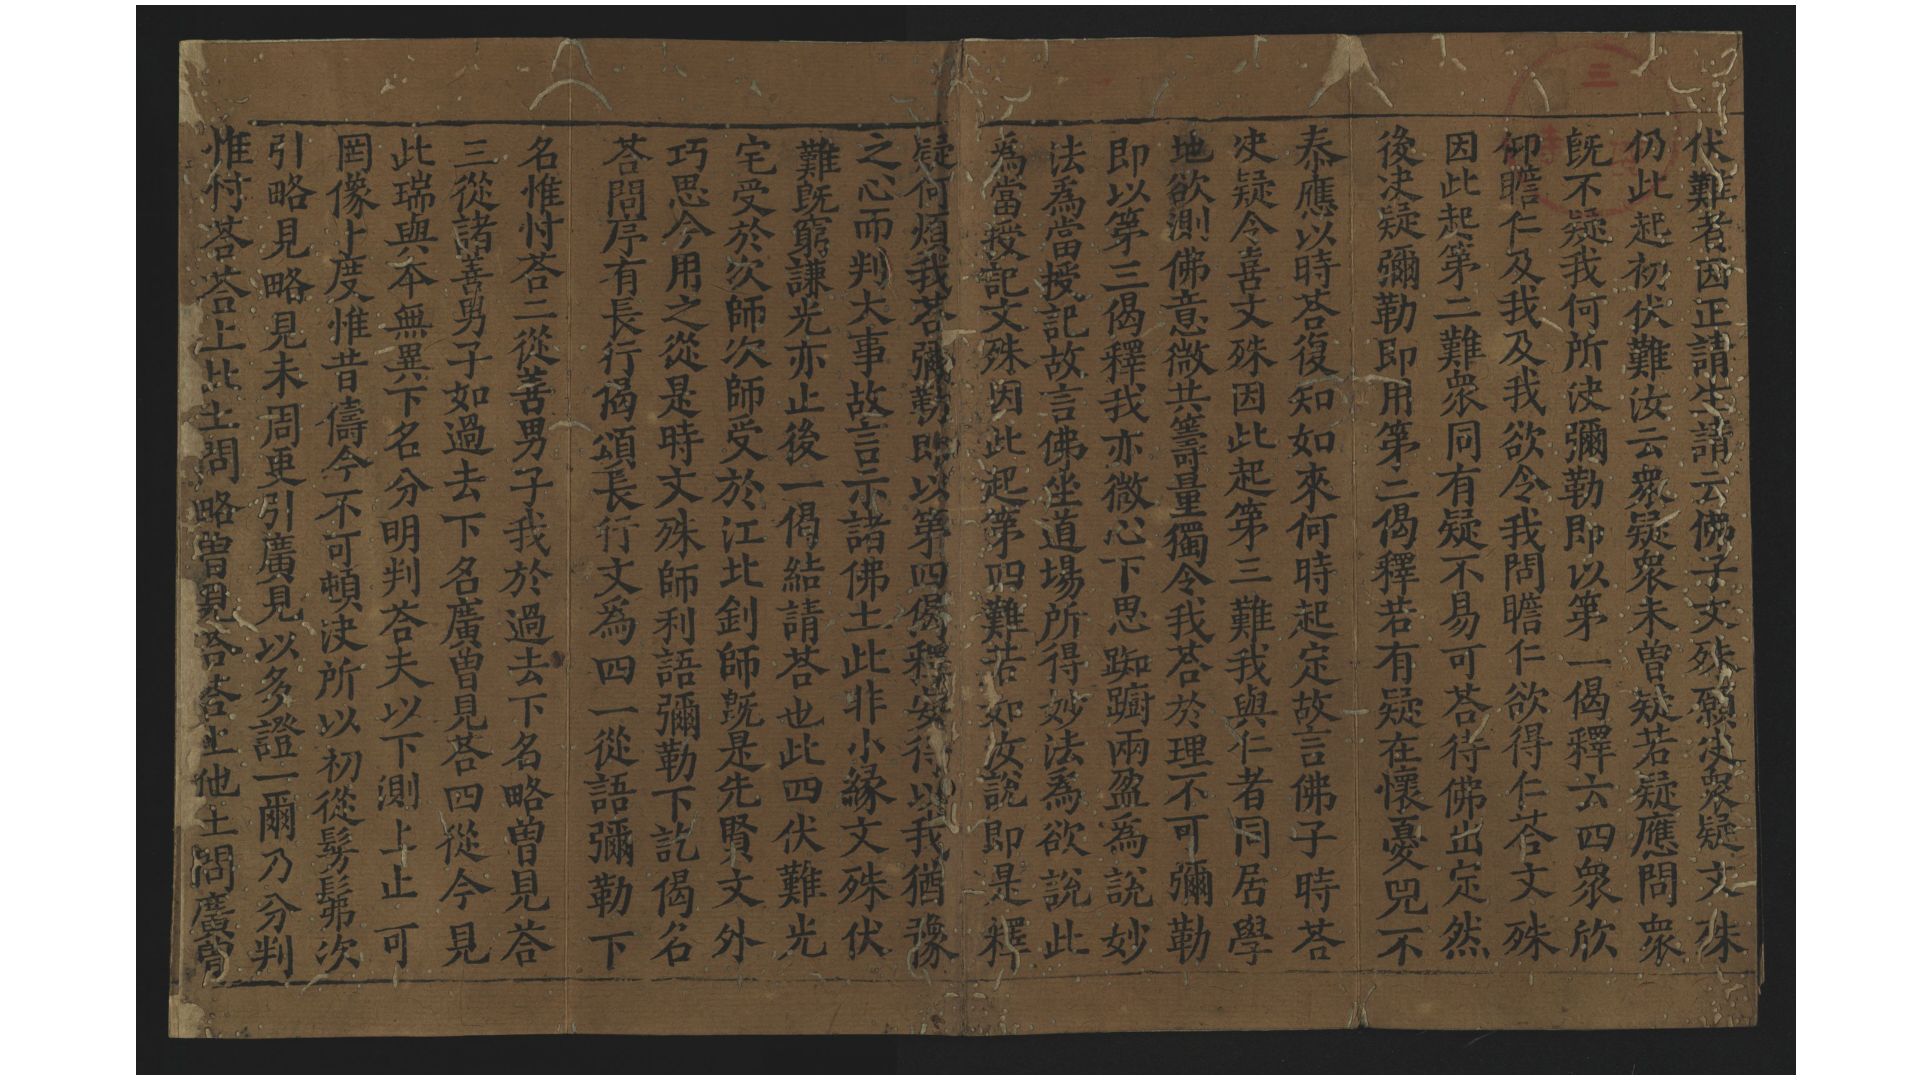 伏難者因正請生請云佛子文殊願決衆疑文殊
仍此起初伏難汝云衆疑衆未曽疑若疑應問衆
旣不疑我何所決彌勒即以第一偈釋云四衆欣
仰瞻仁及我及我欲令我問瞻仁欲得仁荅文殊
因此起第二難衆同有疑不易可荅待佛出定然
後決疑彌勒即用第二偈釋若有疑在懷憂兕不
泰應以時荅復知如來何時起定故言佛子時荅
決疑令喜文殊因此起第三難我與仁者同居學
地欲測佛意微共籌量獨令我荅於理不可彌勒
即以第三偈釋我亦微心下思踟蹰兩盈為說妙
法為當授記故言佛坐道場所得妙法為欲說此
為當授記文殊因此起第四難若如汝說即是釋
疑何煩我荅彌勒即以第四偈釋安得以我猶豫
之心而判大事故言示諸佛土此非小緣文殊伏
難旣窮謙光亦止後一偈結請荅也此四伏難光
宅受於次師次師受於江北釗師旣是先賢文外
巧思今用之從是時文殊師利語彌勒下訖偈名
荅問序有長行偈頌長行文為四一從語彌勒下
名惟忖荅二從善男子我於過去下名略曽見荅
三從諸善男子如過去下名廣曽見荅四從今見
此瑞與本無異下名分明判荅夫以下測上止可
罔像上度惟昔儔今不可頓決所以初從髣髴次
引略見略見未周更引廣見以多證一爾乃分判
惟忖荅荅上此土問略曽見荅荅上他土問廣曽